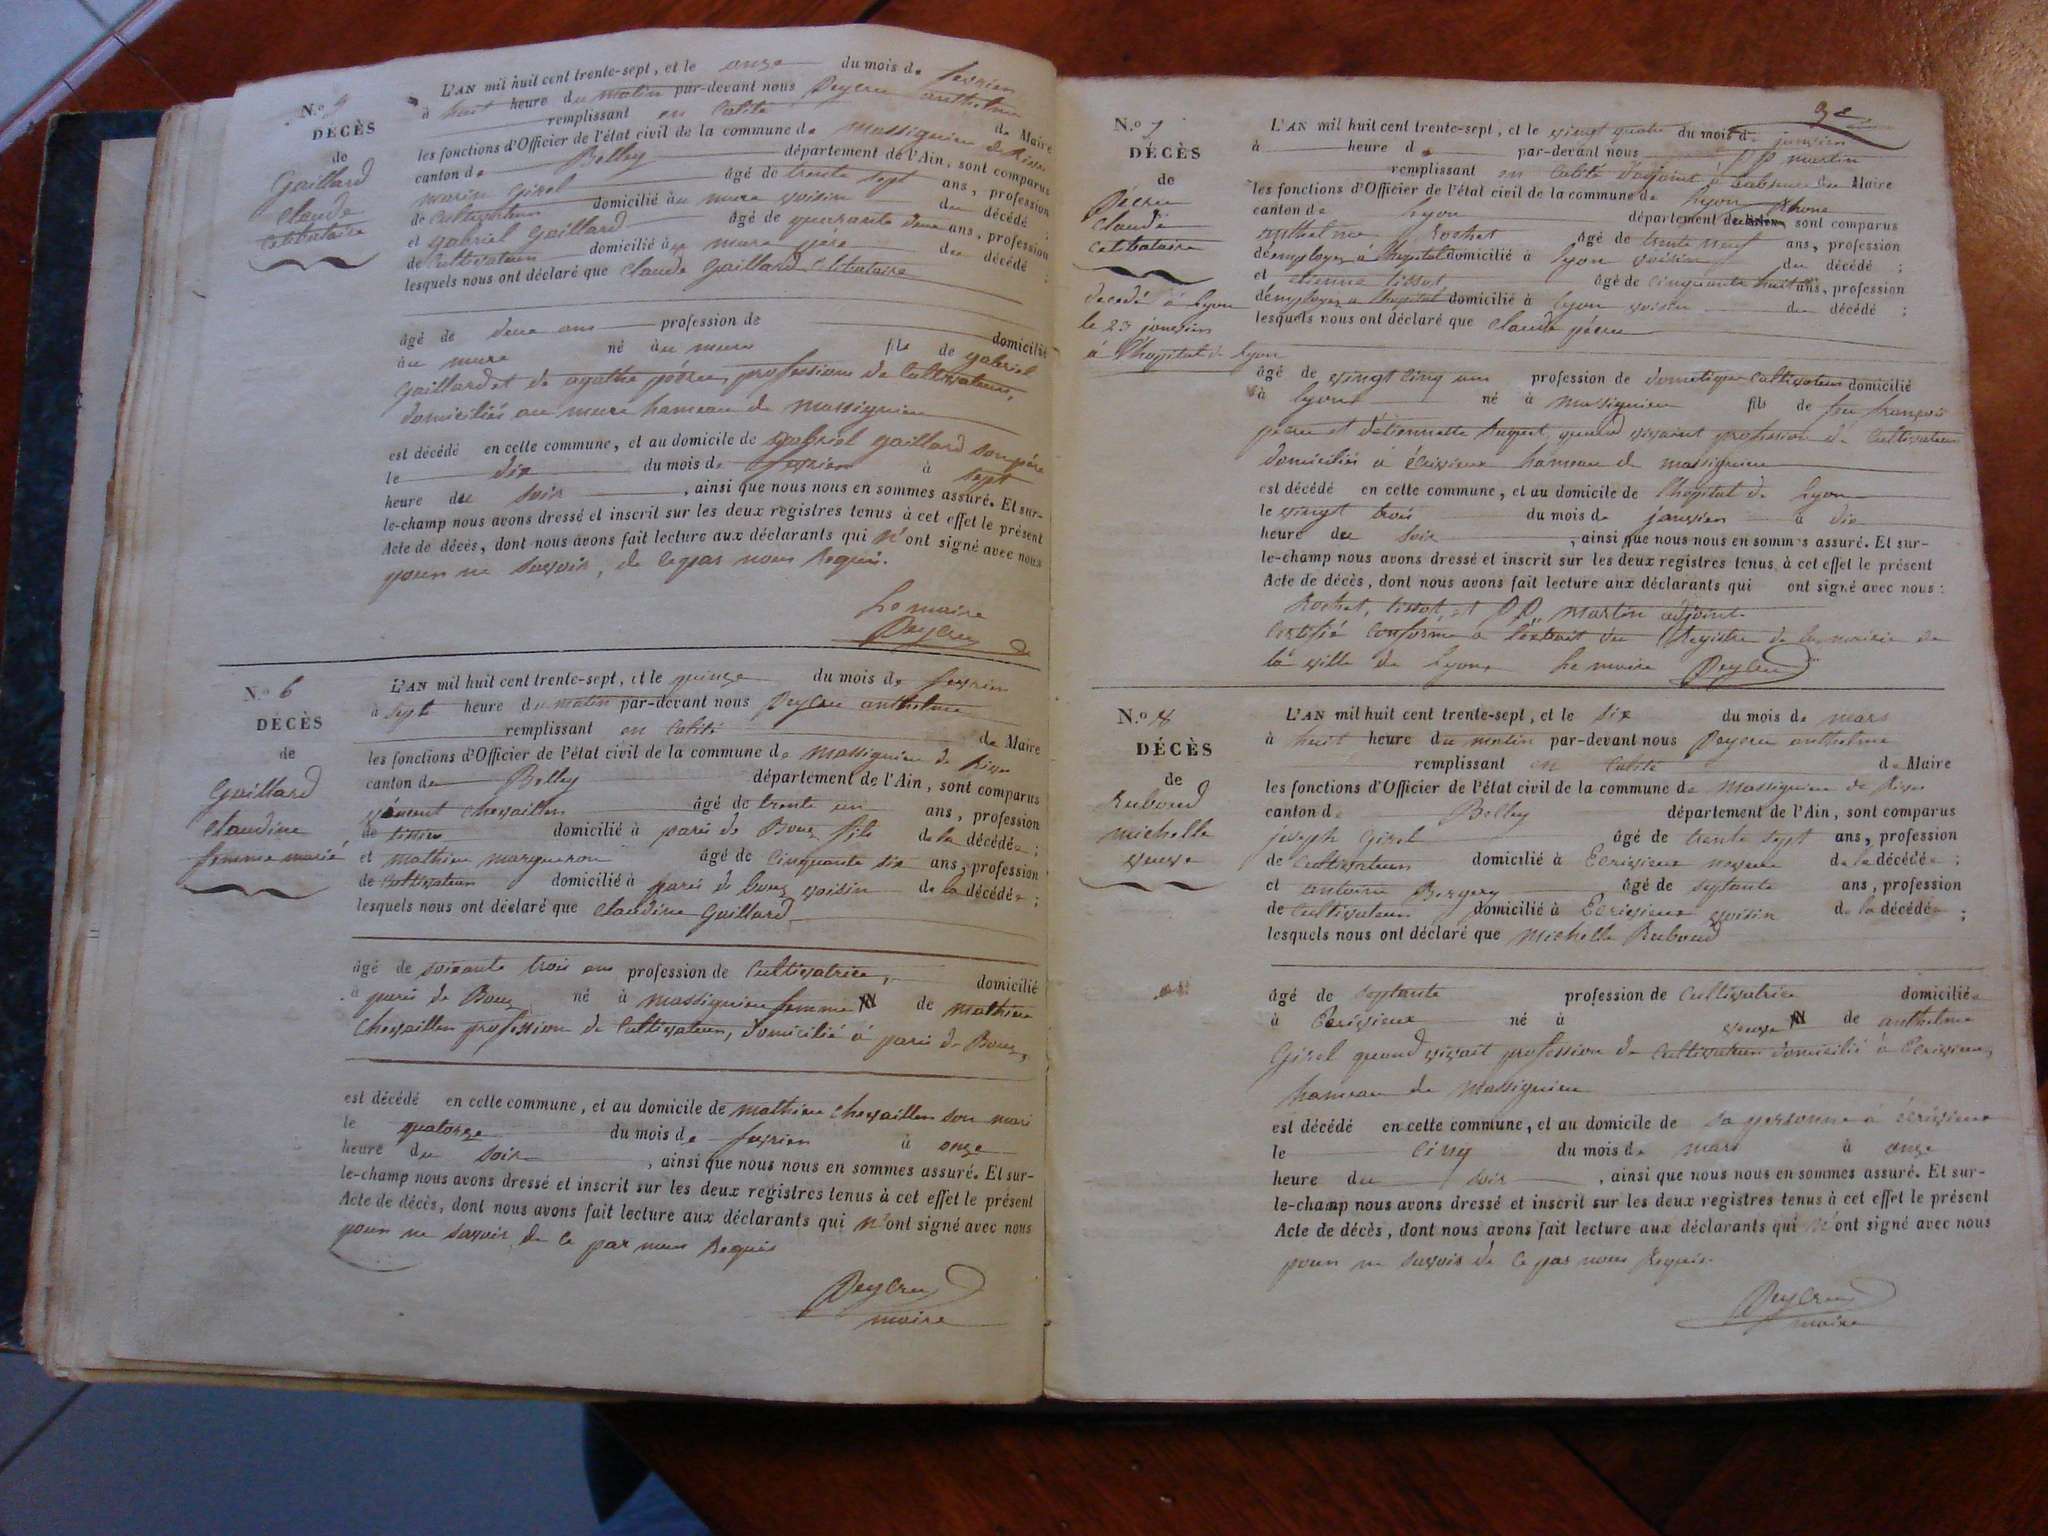 N.o 5
DÉCÈS
de
Gaillard
Claude
Celibataire
L'AN mil huit cent trente-sept, et le onze du mois de fevrier
à huit heure du matin par-devant nous Peycru anthelme
remplissant en calité de Maire
les fonctions d'Officier de l'état civil de la commune de massignieu de Rives
canton de Belley département de l'Ain, sont comparus
marin Girel âgé de trente sept ans, profession
de Cultivateur domicilié àu mure voisin du décédé ;
et gabriel Gaillard âgé de quarante deux ans, profession
de Cultivateur domicilié àu mure père du décédé ;
lesquels nous ont déclaré que Claude Gaillard Celibataire
âgé de deux ans profession de domicilié
àu mure né àu mure fils de gabriel
Gaillard et de agathe pécru, professions de Cultivateurs,
domiciliés au mure hameau de massignieu
est décédé en cette commune, et au domicile de gabriel gaillard son père
le dix du mois de fevrier à sept
heure du soir , ainsi que nous nous en sommes assuré. Et sur-
le-champ nous avons dressé et inscrit sur les deux registres tenus à cet effet le présent
Acte de décès, dont nous avons fait lecture aux déclarants qui n'ont signé avec nous
pour ne savoir, de ce par nous Requis.
Le maire
Peycru
N.o 6
DÉCÈS
de
Gaillard
Claudine
femme marié
L'AN mil huit cent trente-sept, et le quinze du mois de fevrier
à sept heure du matin par-devant nous Peycru anthelme
remplissant en calité de Maire
les fonctions d'Officier de l'état civil de la commune de massignieu de Rives
canton de Belley département de l'Ain, sont comparus
Chevaillon âgé de trente un ans, profession
de domicilié à paris de Bouz fils de la décédée ;
et mathieu margueron âgé de cinquante six ans, profession
de Cultivateur domicilié à paris de bouz voisin de la décédée ;
lesquels nous ont déclaré que Claudine Gaillard
âgé de soixante trois ans profession de Cultivatrice, domicilié
à paris de Bouz né à massignieu femme de mathieu
Chevaillon profession de Cultivateur, domicilié à paris de Bouz,
est décédé en cette commune, et au domicile de mathieu Chevaillon son mari
le quatorze du mois de fevrier à onze
heure du soir , ainsi que nous nous en sommes assuré. Et sur-
le-champ nous avons dressé et inscrit sur les deux registres tenus à cet effet le présent
Acte de décès, dont nous avons fait lecture aux déclarants qui n'ont signé avec nous
pour ne savoir de ce par nous Requis
Peycru
maire
N.o 7
DÉCÈS
de
Pécru
Claude
Celibataire
decedé à Lyon
le 23 janvier
à l'hopital de Lyon
L'AN mil huit cent trente-sept, et le vingt quatre du mois de janvier
à heure d par-devant nous P P martin
remplissant en calité d'adjoint à l'absence du Maire
les fonctions d'Officier de l'état civil de la commune de Lyon
canton de Lyon département du Rhone sont comparus
anthelme Rochet âgé de trente neuf ans, profession
d'employez à l'hopital domicilié à Lyon voisin du décédé ;
et etienne tissot âgé de cinquante huit ans, profession
d'employez a l'hopital domicilié à Lyon voisin du décédé ;
lesquels nous ont déclaré que Claude pécru
âgé de vingt cinq ans profession de domestique Cultivateur domicilié
à Lyon né à massignieu fils de feu françois
pécru et d'etiennette quand vivaint profession de Cultivateur
domiciliés à écrivieux hameau de massignieu
est décédé en cette commune, et au domicile de l'hopital de Lyon
le vingt trois du mois de janvier à dix
heure du soir , ainsi que nous nous en sommes assuré. Et sur-
le-champ nous avons dressé et inscrit sur les deux registres tenus à cet effet le présent
Acte de décès, dont nous avons fait lecture aux déclarants qui ont signé avec nous :
Rochet, tissot et P P martin adjoint
Certifié conforme à l'extrait du Registre de la mairie de
la ville de Lyon Le maire Peycru
N.o 8
DÉCÈS
de
Ruboud
michelle
veuve
L'AN mil huit cent trente-sept, et le six du mois de mars
à huit heure du matin par-devant nous Peycru anthelme
remplissant en calité de Maire
les fonctions d'Officier de l'état civil de la commune de massignieu de Rives
canton de Belley département de l'Ain, sont comparus
joseph Girel âgé de trente sept ans, profession
de Cultivateur domicilié à Ecrivieux neveu de la décédée ;
et antoine âgé de septante ans, profession
de Cultivateur domicilié à Ecrivieux voisin de la décédée ;
lesquels nous ont déclaré que michelle Ruboud
âgé de septante profession de Cultivatrice domiciliée
à Ecrivieux né à veuve de anthelme
Girel quand vivait profession de Cultivateur domicilié à Ecrivieux,
hameau de massignieu
est décédé en cette commune, et au domicile de sa personne à écrivieux
le cinq du mois de mars à onze
heure du soir , ainsi que nous nous en sommes assuré. Et sur-
le-champ nous avons dressé et inscrit sur les deux registres tenus à cet effet le présent
Acte de décès, dont nous avons fait lecture aux déclarants qui n'ont signé avec nous
pour ne savoir de ce par nous Requis.
Peycru
maire